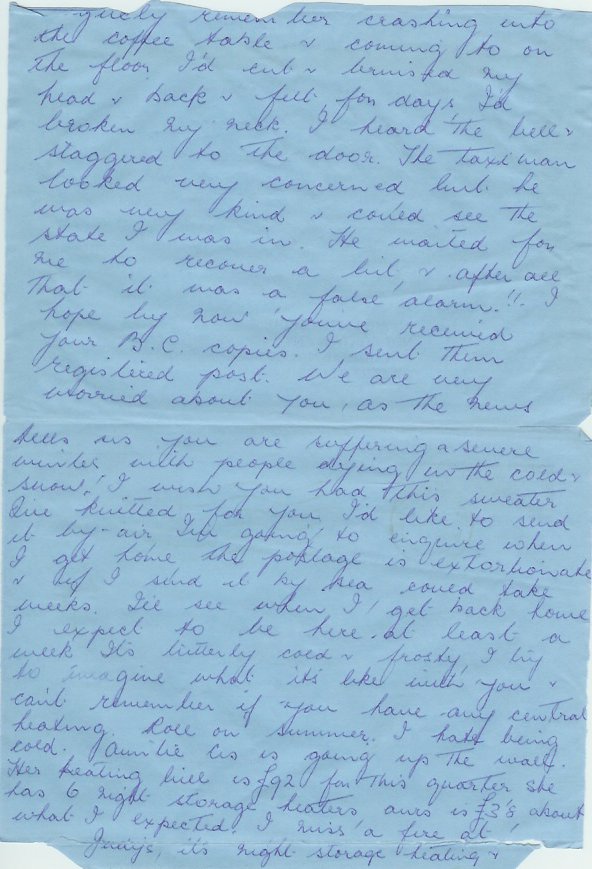 remember crashing into
the coffee table & coming to on
the floor I'd cut & bruised my
head & back & felt for days I'd
broken my neck. I heard the bell &
staggered to the door. The taximan
looked very concerned but he
was very kind & could see the
state I was in. He waited for
me to recover a bit & after all
that it was a false alarm!! I
hope by now you've received
your B.C. copies. I sent them
registered post. We are very
worried about you, as the news
tells us you are suffering a severe
winter with people dying in the cold &
snow! I wish you had this sweater
I've knitted for you I'd like to send
it by air I'm going to enquire when
I get home the postage is extortionate
& if I send it by sea could take
weeks. I'll see when I get back home
I expect to be here at least a
week It's bitterly cold & frosty, I try
to imagine what it's like with you &
can't remember if you have any central
heating. Roll on summer. I hate being
cold. Auntie Cis is going up the wall.
Her heating bill is £92 for this quarter she
has 6 night storage heaters ours is about
what I expected. I miss a fire at
it's night storage heating &